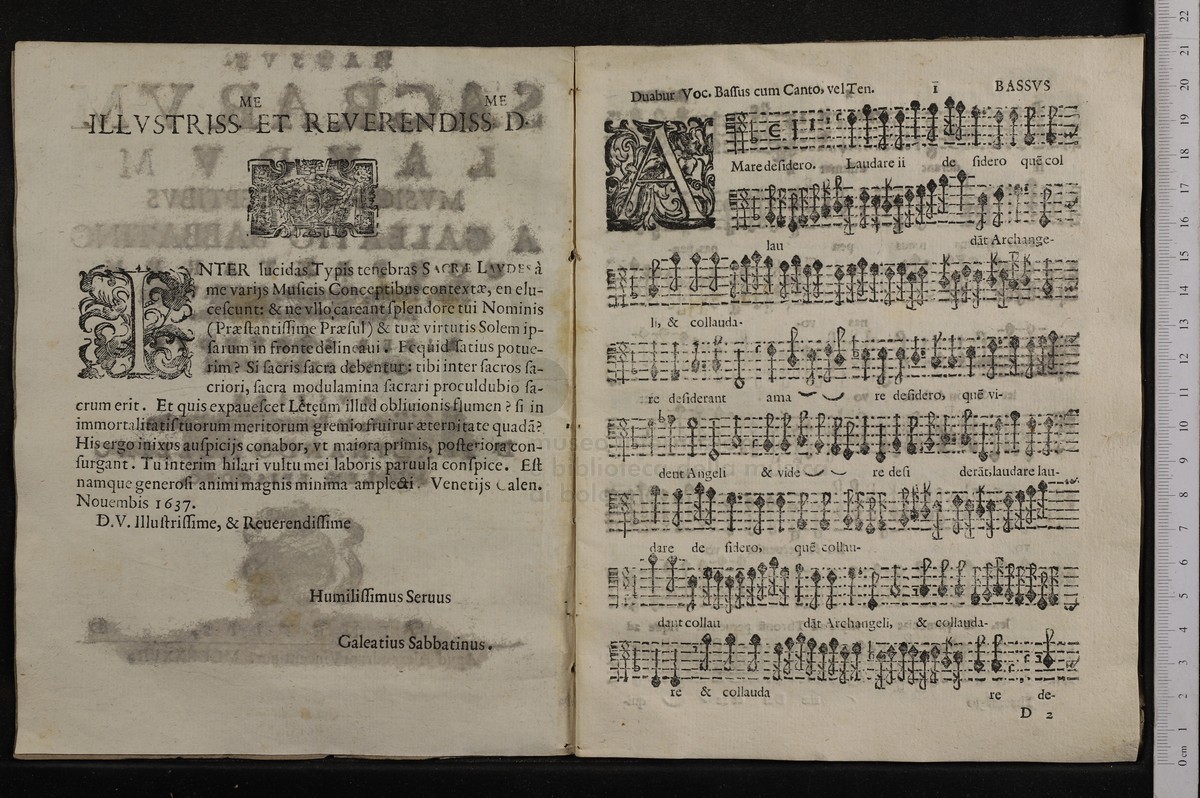 ME ME
ILLVSTRISS ET REVERENDISS D.
INTER lucidas Typis tenebras SACRÆ LAVDES à
me varijs Musicis Conceptibus contextæ, en elu-
cescunt: & ne vllo careant splendore tui Nominis
(Præstantissime Præsul) & tuæ virtutis Solem ip-
sarum in fronte delineaui. Ecquid satius potue-
rim? Si sacris sacra debentur: tibi inter sacros sa-
criori, sacra modulamina sacrari proculdubio sa-
crum erit. Et quis expauescet Letęum illud obliuionis flumen? si in
immortalitatis tuorum meritorum gremio fruirur æternitate quadā?
His ergo inixus auspicijs conabor, vt maiora primis, posteriora con-
surgant. Tu interim hilari vultu mei laboris paruula conspice. Est
namque generosi animi magnis minima amplecti. Venetijs Calen.
Nouembis 1637.
D.V. Illustrissime, & Reuerendissime
Humilissimus Seruus
Galeatius Sabbatinus.
Duabur Voc. Bassus cum Canto, vel Ten. 1 BASSVS
AMare desidero. Laudare ii de sidero quē col
lau dāt Archange-
li, & collauda-
re desiderant ama re desidero, quē vi-
dent Angeli & vide re desi derāt, laudare lau-
dare de sidero, quē collau-
dant collau dāt Archangeli, & collauda-
re & collauda re de-
D 2